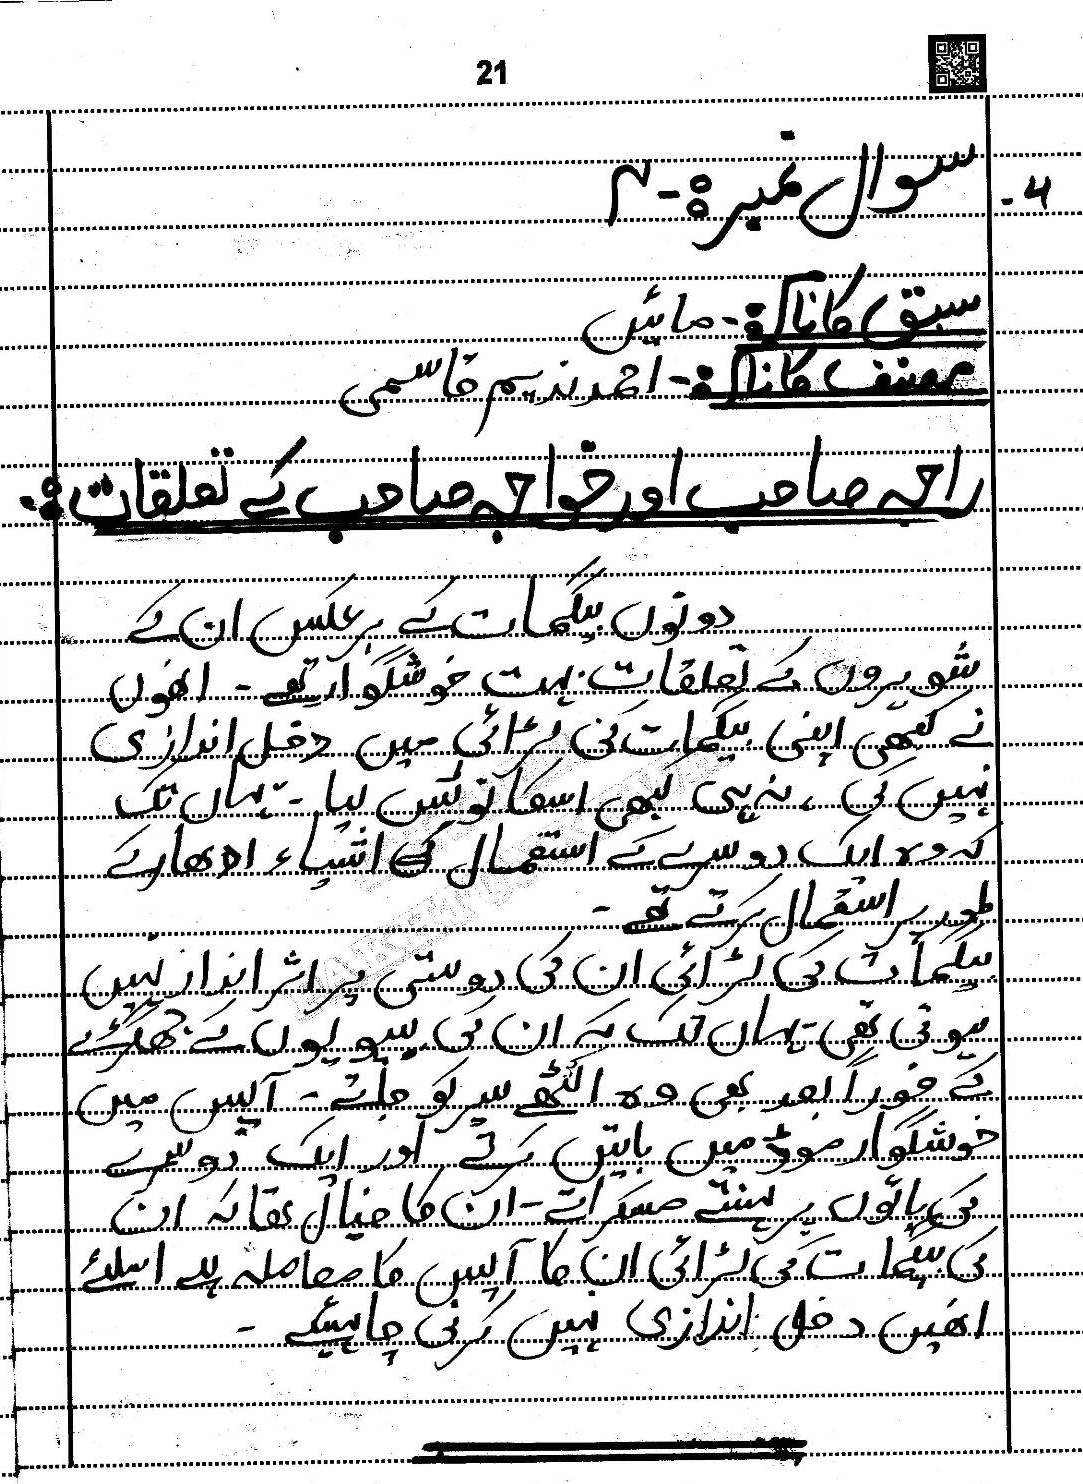 21
سوال نمبر:- ۴
4-
سبق کا نام:- مائیں
مصنف کا نام:- احمد ندیم قاسمی
راجہ صاحب اور خواجہ صاحب کے تعلقات:-
دونوں بیگمات کے برعکس ان کے
شوہروں کے تعلقات بہت خوشگوار تھے - انھوں
نے کبھی اپنی بیگمات کی لڑائی میں دخل اندازی
نہیں کی ، نہ ہی کبھی اسکا نوٹس لیا - یہاں تک
کہ وہ ایک دوسرے کے استعمال کی اشیاء ادھار کے
طور پر استعمال کرتے تھے -
بیگمات کی لڑائی ان کی دوستی پر اثر انداز نہیں
ہوتی تھی - یہاں تک کہ ان کی بیویوں کے جھگڑے
کے فوراً بعد بھی وہ اکٹھے سیر کو جاتے - آپس میں
خوشگوار موڈ میں باتیں کرتے اور ایک دوسرے
کی باتوں پر ہنستے مسکراتے - ان کا خیال تھا کہ ان
کی بیگمات کی لڑائی ان کا آپس کا معاملہ ہے اسلئے
انھیں دخل اندازی نہیں کرنی چاہیئے -